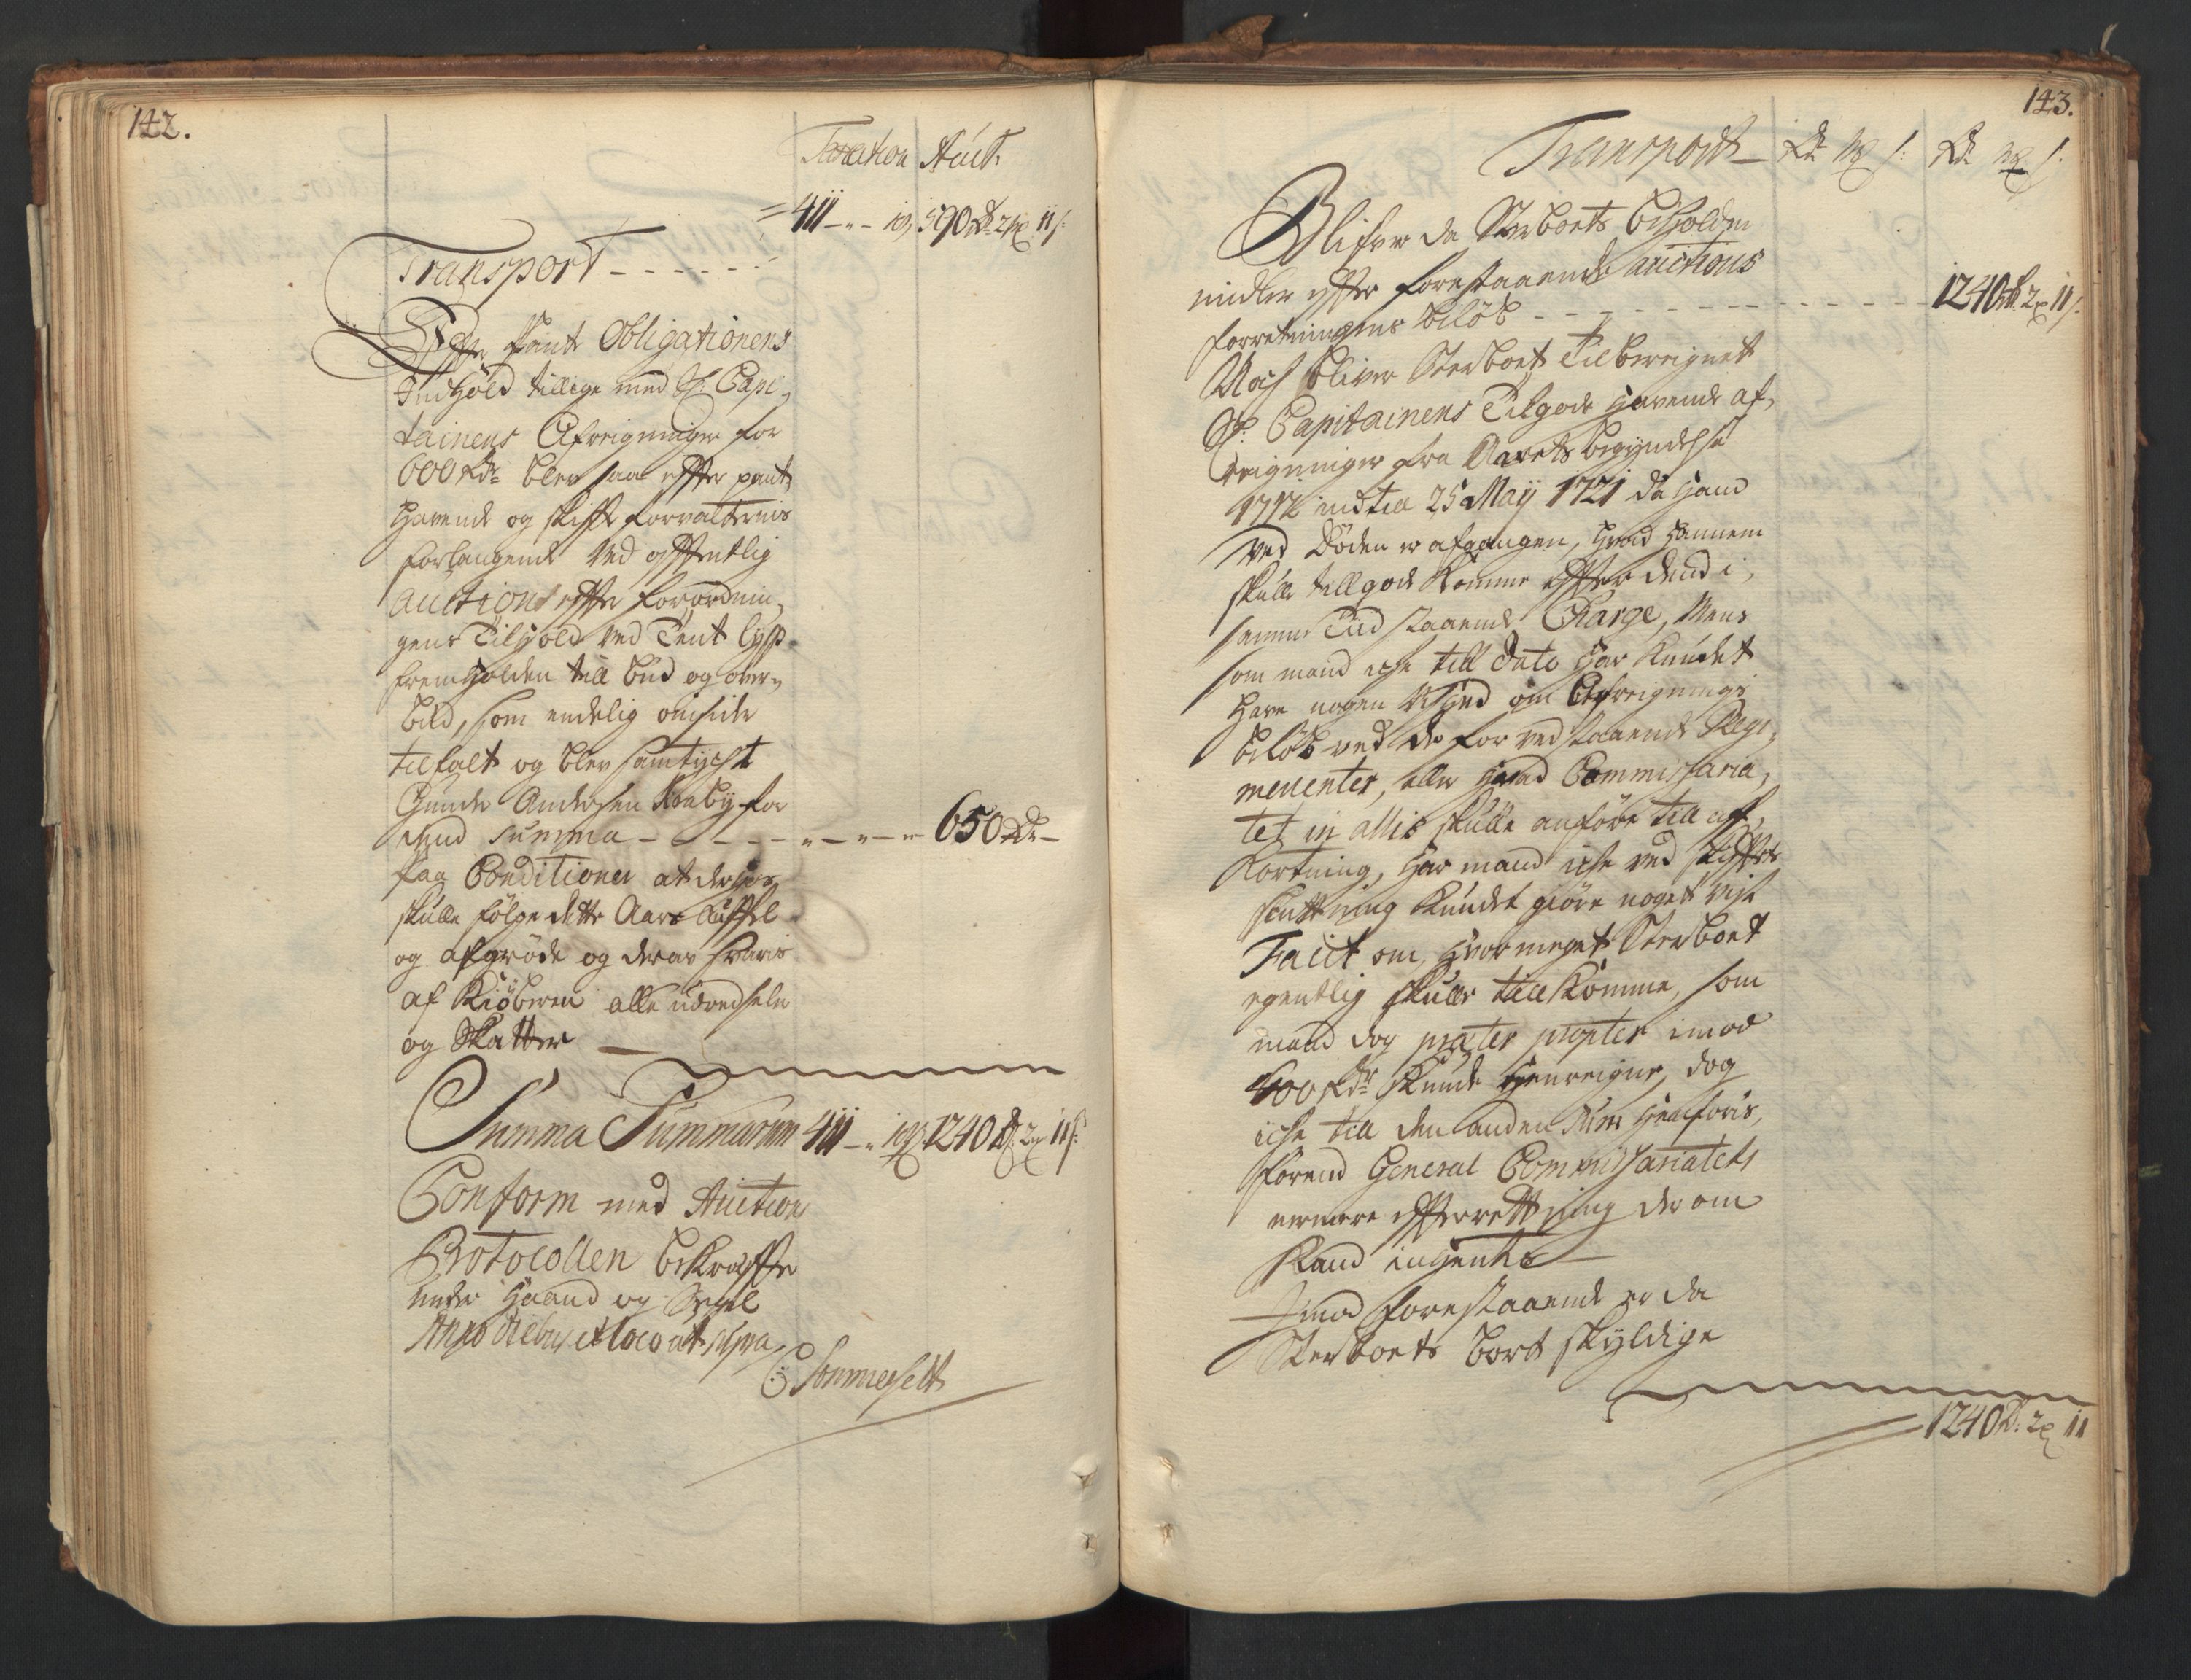 142.
Taxation Auct.
411 - - 590 Rdr 2 11 s:
Transport - - - - - -
Efter Pante Obligationens
Indhold tillige med H: Capi-
tainens Afreigninger for
600 Rdr blev saa efter pant-
havende og skifte forvalternis
forlangende ved offentlig
auctions efter forordnin-
gens Tilhold ved Tent lyss
fremholden till bud og over-
bud, som endelig omsider
tilfalt og blev samtycht
Gunder Andersen for
Summa - - - - - 650 Rdr -
paa Conditioner at derhos
skulle følge dette Aars
og afgrøde og derav svaris
af Kiøberen alle udredseler
og Skatter
Summa Summarum 411 - 1240 Rd 2 11 s:
Conform med Auction
Protocollen bekræffter
under Haand og Segel
Anno diebus et loco ut supra
Sommerfelt
143.
Transport - Rdr s: Rdr s:
Blifver da Sterboets beholden
midler efter forestaaende auctions
forretningens beløb - - - - - - 1240 Rd 2 11 s:
Noch bliver Sterboet tilbereignet
H: Capitainens Tilgode havende af-
reigninger fra Aarets begyndelse
indtil 25 Maij 1721 da hand
ved Døden er afgangen, hvad hannem
skulle tillgode komme efter dend i
samme Tiid staaende Charge, Mens
som mand iche till Dato har kundet
have nogen om Afreignings
beløb ved de forved staaende Regi-
menenter, eller hvad Commissaria-
tet in allis skulle anføre till aff-
kortning, har mand iche ved skifftets
sluttning kundet giøre noget vist
Facit om, hvor meget Sterboet
egentlig skulle till komme, som
mand dog præter propter imod
400 Rdr kunde henreigne, dog
iche till den anden
førend General Commissariatets
nermere efterrettning der om
kand inhentes
Imod forestaaende er da
Sterboets bort skyldige
1240 Rd: 2 11